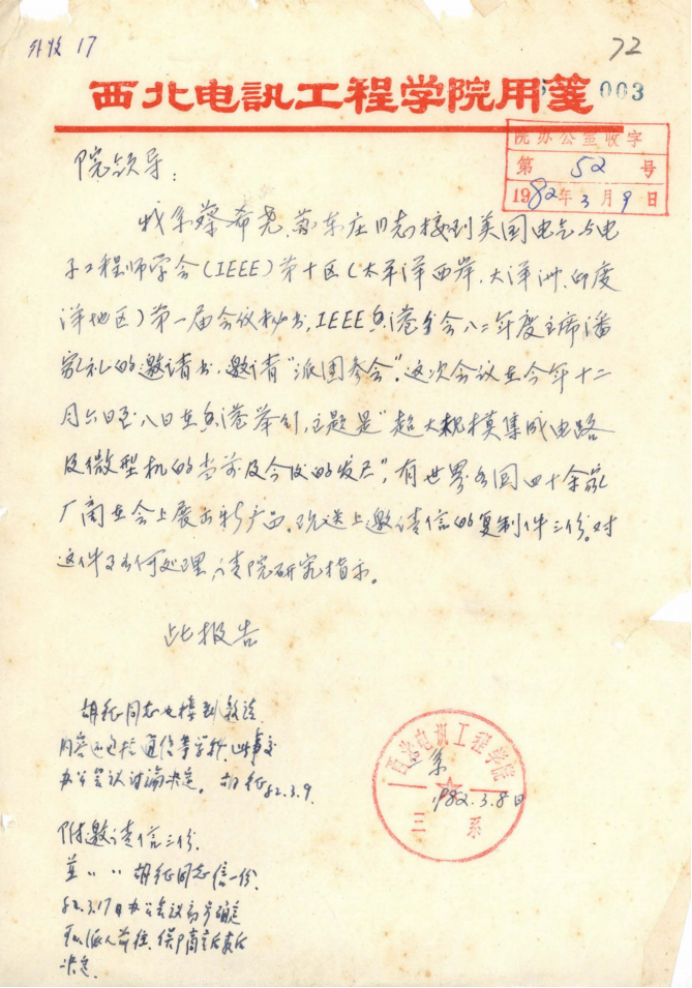 外收 17
72
西北电訊工程学院用箋
003
院办公室收字
第 52 号
1982年3月9日
院领导:
我系蔡希尧、苏东庄同志接到美国电气与电
子工程师学会(IEEE)第十区(太平洋西岸、大洋洲、印度
洋地区)第一届会议秘书,IEEE香港分会八二年度主席潘
家礼的邀请书,邀请“派团参会”。这次会议在今年十二
月六日至八日在香港举行,主题是“超大规模集成电路
及微型机的当前及今后的发展”,有世界各国四十余家
厂商在会上展出新产品。现送上邀请信的复制件三份。对
这件事如何处理,请院研究指示。
此报告
西北电讯工程学院
三系
1982.3.8日
三系
胡征同志也接到邀请
内容还包括通信等学科,此事交
办公会议讨论决定。胡征 82.3.9.
附邀请信三份.
并 〃 〃 胡征同志信一份.
82.3.17日办公会议初步确定
可以派人前往,
决定.